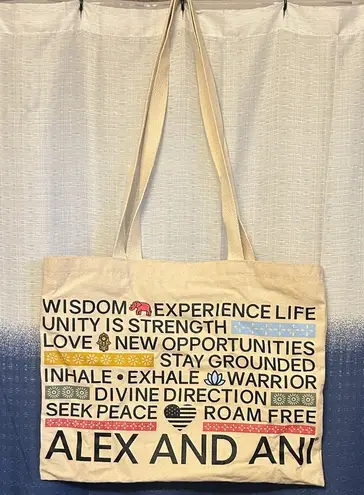 WISDOM EXPERIENCE LIFE
UNITY IS STRENGTH
LOVE NEW OPPORTUNITIES
STAY GROUNDED
INHALE • EXHALE WARRIOR
DIVINE DIRECTION
SEEK PEACE ROAM FREE
ALEX AND ANI